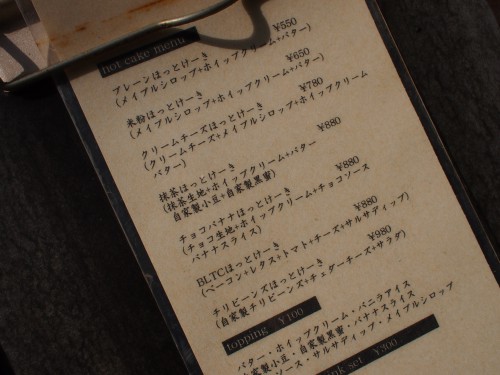 hot cake menu
プレーンほっとけーき ¥550
(メイプルシロップ+ホイップクリーム+バター)
米粉ほっとけーき ¥650
(メイプルシロップ+ホイップクリーム+バター)
クリームチーズほっとけーき ¥780
(クリームチーズ+メイプルシロップ+ホイップクリーム
バター)
抹茶ほっとけーき ¥880
(抹茶生地+ホイップクリーム+バター
自家製小豆+自家製黒蜜)
チョコバナナほっとけーき ¥880
(チョコ生地+ホイップクリーム+チョコソース
バナナスライス)
BLTCほっとけーき ¥880
(ベーコン+レタス+トマト+チーズ+サルサディップ)
チリビーンズほっとけーき ¥980
(自家製チリビーンズ+チェダーチーズ+サラダ)
topping ¥100
バター・ホイップクリーム・バニラアイス
自家製小豆・自家製黒蜜・バナナスライス
ソース・サルサディップ・メイプルシロップ
set ¥300